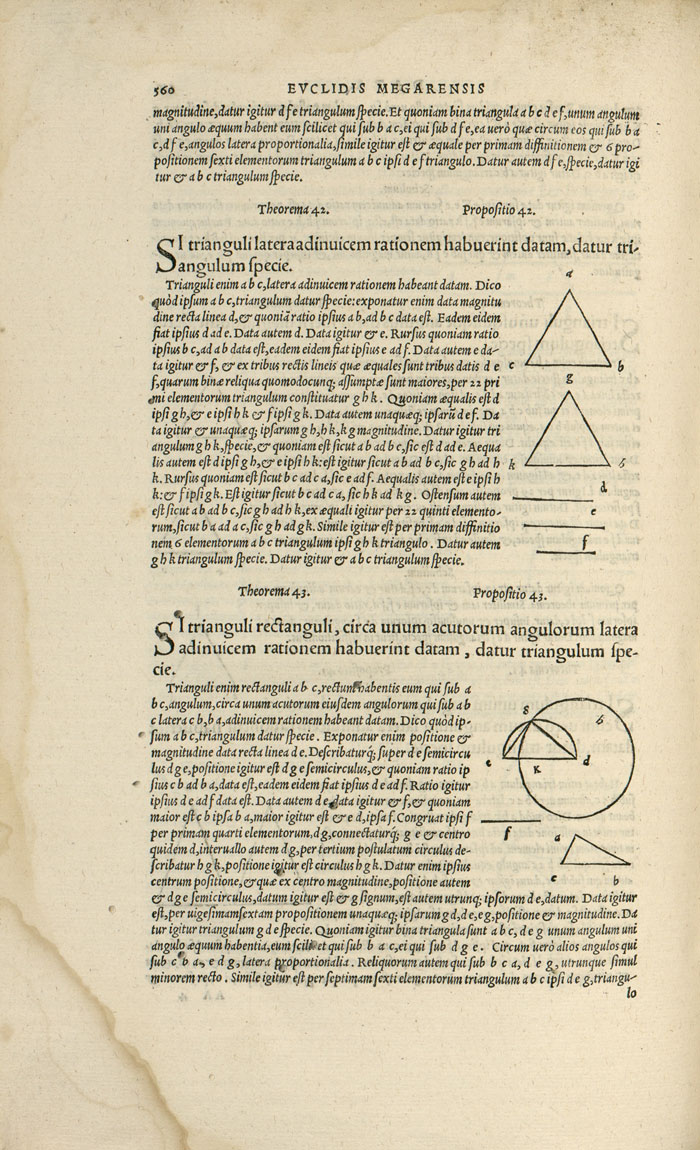 560 EVCLIDIS MEGARENSIS
magnitudine, datur igitur d f e triangulum specie. Et quoniam bina triangula a b c d e f, unum angulum
uni angulo æquum habent eum scilicet qui sub b a c, ei qui sub d f e, ea uerò quæ circum eos qui sub b a
c, d f e, angulos latera proportionalia, simile igitur est & æquale per primam diffinitionem & 6 pro-
positionem sexti elementorum triangulum a b c ipsi d e f triangulo. Datur autem d f e, specie, datur igi
tur & a b c triangulum specie.
Theorema 42. Propositio 42.
SI trianguli latera adinuicem rationem habuerint datam, datur tri-
angulum specie.
Trianguli enim a b c, latera adinuicem rationem habeant datam. Dico
quòd ipsum a b c, triangulum datur specie: exponatur enim data magnitu
dine recta linea d, & quoniã ratio ipsius a b, ad b c data est. Eadem eidem
fiat ipsius d ad e. Data autem d. Data igitur & e. Rursus quoniam ratio
ipsius b c, ad a b data est, eadem eidem fiat ipsius e ad f. Data autem e da-
ta igitur & f, & ex tribus rectis lineis quæ æquales sunt tribus datis d e
f, quarum binæ reliqua quomodocunq; assumptæ sunt maiores, per 22 pri
mi elementorum triangulum constituatur g h k. Quoniam æqualis est d
ipsi g h, & e ipsi h k & f ipsi g k. Data autem unaquæq; ipsarũ d e f. Da
ta igitur & unaquæq; ipsarum g h, h k, k g magnitudine. Datur igitur tri
angulum g h k, specie, & quoniam est sicut a b ad b c, sic est d ad e. Aequa
lis autem est d ipsi g h, & e ipsi h k: est igitur sicut a b ad b c, sic g h ad h
k. Rursus quoniam est sicut b c ad c a, sic e ad f. Aequalis autem est e ipsi h
k: & f ipsi g k. Est igitur sicut b c ad c a, sic h k ad k g. Ostensum autem
est sicut a b ad b c, sic g h ad h k, ex æquali igitur per 22 quinti elemento-
rum, sicut b a ad a c, sic g h ad g k. Simile igitur est per primam diffinitio
nem 6 elementorum a b c triangulum ipsi g h k triangulo. Datur autem
g h k triangulum specie. Datur igitur & a b c triangulum specie.
a
c b
g
k h
d
e
f
Theorema 43. Propositio 43.
SI trianguli rectanguli, circa unum acutorum angulorum latera
adinuicem rationem habuerint datam, datur triangulum spe-
cie.
Trianguli enim rectanguli a b c, rectum habentis eum qui sub a
b c, angulum, circa unum acutorum eiusdem angulorum qui sub a b
c latera c b, b a, adinuicem rationem habeant datam. Dico quòd ip-
sum a b c, triangulum datur specie. Exponatur enim positione &
magnitudine data recta linea d e. Describaturq; super d e semicircu
lus d g e, positione igitur est d g e semicirculus, & quoniam ratio ip
sius c b ad b a, data est, eadem eidem fiat ipsius d e ad f. Ratio igitur
ipsius d e ad f data est. Data autem d e, data igitur & f, & quoniam
maior est c b ipsa b a, maior igitur est & e d, ipsa f. Congruat ipsi f
per primam quarti elementorum, d g, connectaturq; g e & centro
quidem d, interuallo autem d g, per tertium postulatum circulus de-
scribatur h g k, positione igitur est circulus h g k. Datur enim ipsius
centrum positione, & quæ ex centro magnitudine, positione autem
& d g e semicirculus, datum igitur est & g signum, est autem utrunq; ipsorum d e, datum. Data igitur
est, per uigesimamsextam propositionem unaquæq; ipsarum g d, d e, e g, positione & magnitudine. Da
tur igitur triangulum g d e specie. Quoniam igitur bina triangula sunt a b c, d e g unum angulum uni
angulo æquum habentia, eum scilicet qui sub b a c, ei qui sub d g e. Circum uerò alios angulos qui
sub c b a, e d g, latera proportionalia. Reliquorum autem qui sub b c a, d e g, utrunque simul
minorem recto. Simile igitur est per septimam sexti elementorum triangulum a b c ipsi d e g, triangu-
lo
g h
e K d
f a
c b